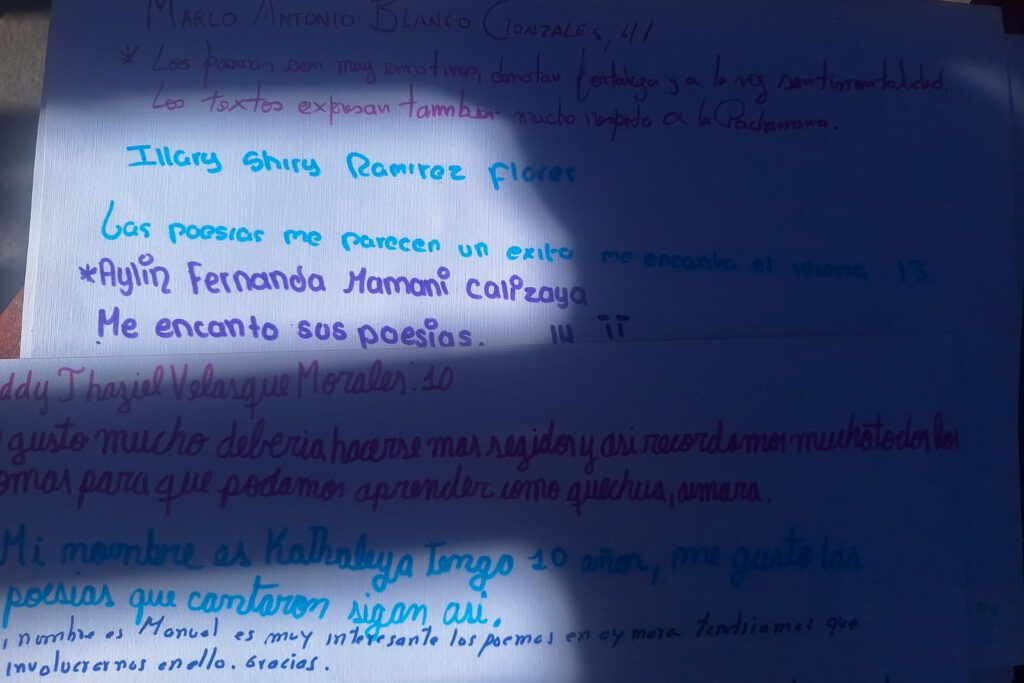 MARCO ANTONIO BLANCO GONZALES, 41
* Los poemas son muy emotivos, denotan fortaleza y a la vez sentimentalidad.
Los textos expresan tambien mucho respeto a la Pachamama.
Illary Shiry Ramirez Flores
Las poesias me parecen un exito me encanta el idioma 13
*Aylin Fernanda Mamani Calizaya
Me encanto sus poesias. 14
ddy Thaziel Velasque Morales: 10
gusto mucho deberia hacerse mas segidos y asi recordamos mucho todos los
omas para que podamos aprender como quechua, aimara.
Mi nombre es Kathaleya tengo 10 años, me gusto las
poesias que cantaron sigan asi.
nombre es Manuel es muy interesante los poemas en aymara tendriamos que
involucrarnos en ello. Gracias.